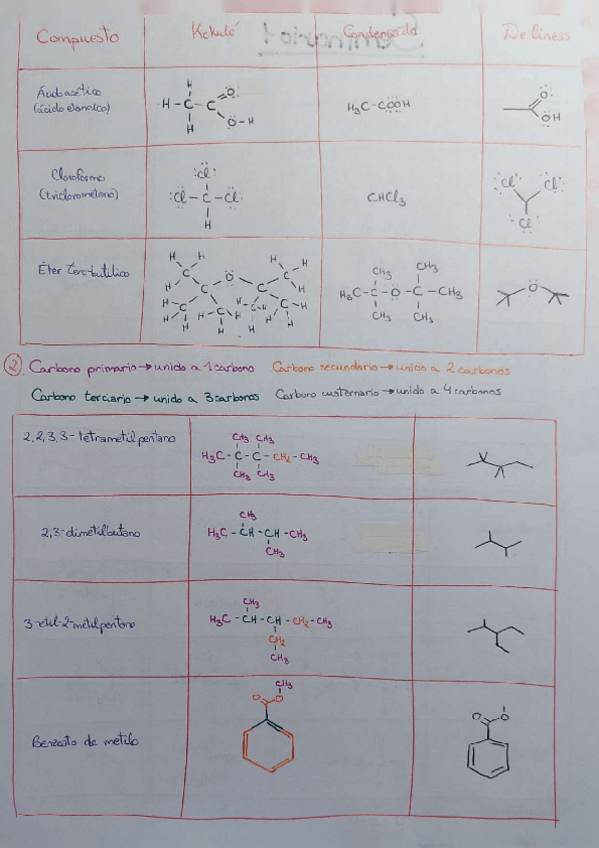 Compuesto Kekulé Condensada De líneas
Ácido acético
(ácido etanoico)
H H-C-C O Ö-H H
H₃C-CÖÖH
O ÖH
Cloroformo
(triclorometano)
Cl Cl-C-Cl H
CHCl₃
Cl Cl Cl
Éter terc-butílico
CH₃ CH₃
H₃C-C-O-C-CH₃
CH₃ CH₃
O
② Carbono primario → unido a 1 carbono Carbono secundario → unido a 2 carbonos
Carbono terciario → unido a 3 carbonos Carbono cuaternario → unido a 4 carbonos
2,2,3,3-tetrametilpentano
CH₃ CH₃
H₃C-C-C-CH₂-CH₃
CH₃ CH₃
2,3-dimetilbutano
CH₃
H₃C-CH-CH-CH₃
CH₃
3-etil-2-metilpentano
CH₃
H₃C-CH-CH-CH₂-CH₃
CH₂
CH₃
Benzoato de metilo
CH₃
O O
O O